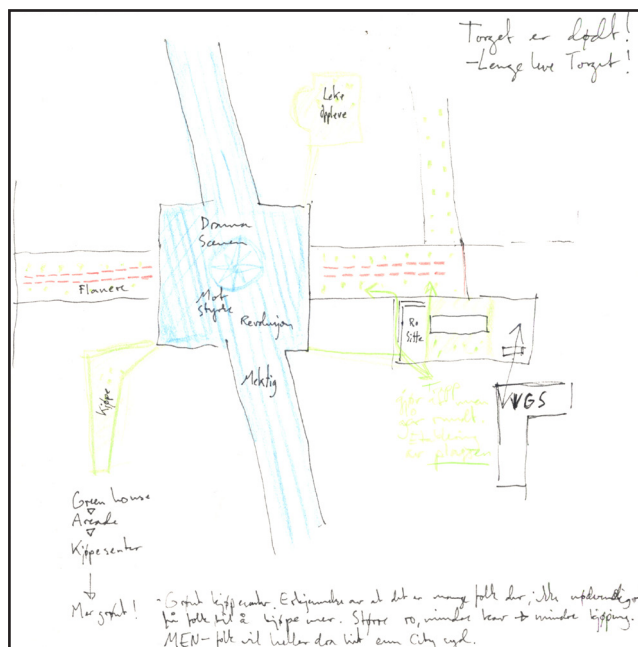 Torget er dødt!
-Lenge leve Torget!
Leke
Oppleve
Drama
Scenen
Flanere
Mot
styrke
Revolusjon
Ro
Sitte
Mektig
Kjøpe
Trapp
rundt.
er plassen
VGS
Green house
Arcade
Kjøpesenter
Mer grønt!
-Grønt kjøpesenter. Erkjennelse av at det er mange folk der, ikke nødvendigvis
for folk til å kjøpe mer. Større ro, mindre krav → mindre kjøping.
MEN - folk vil heller dra hit enn City syd.